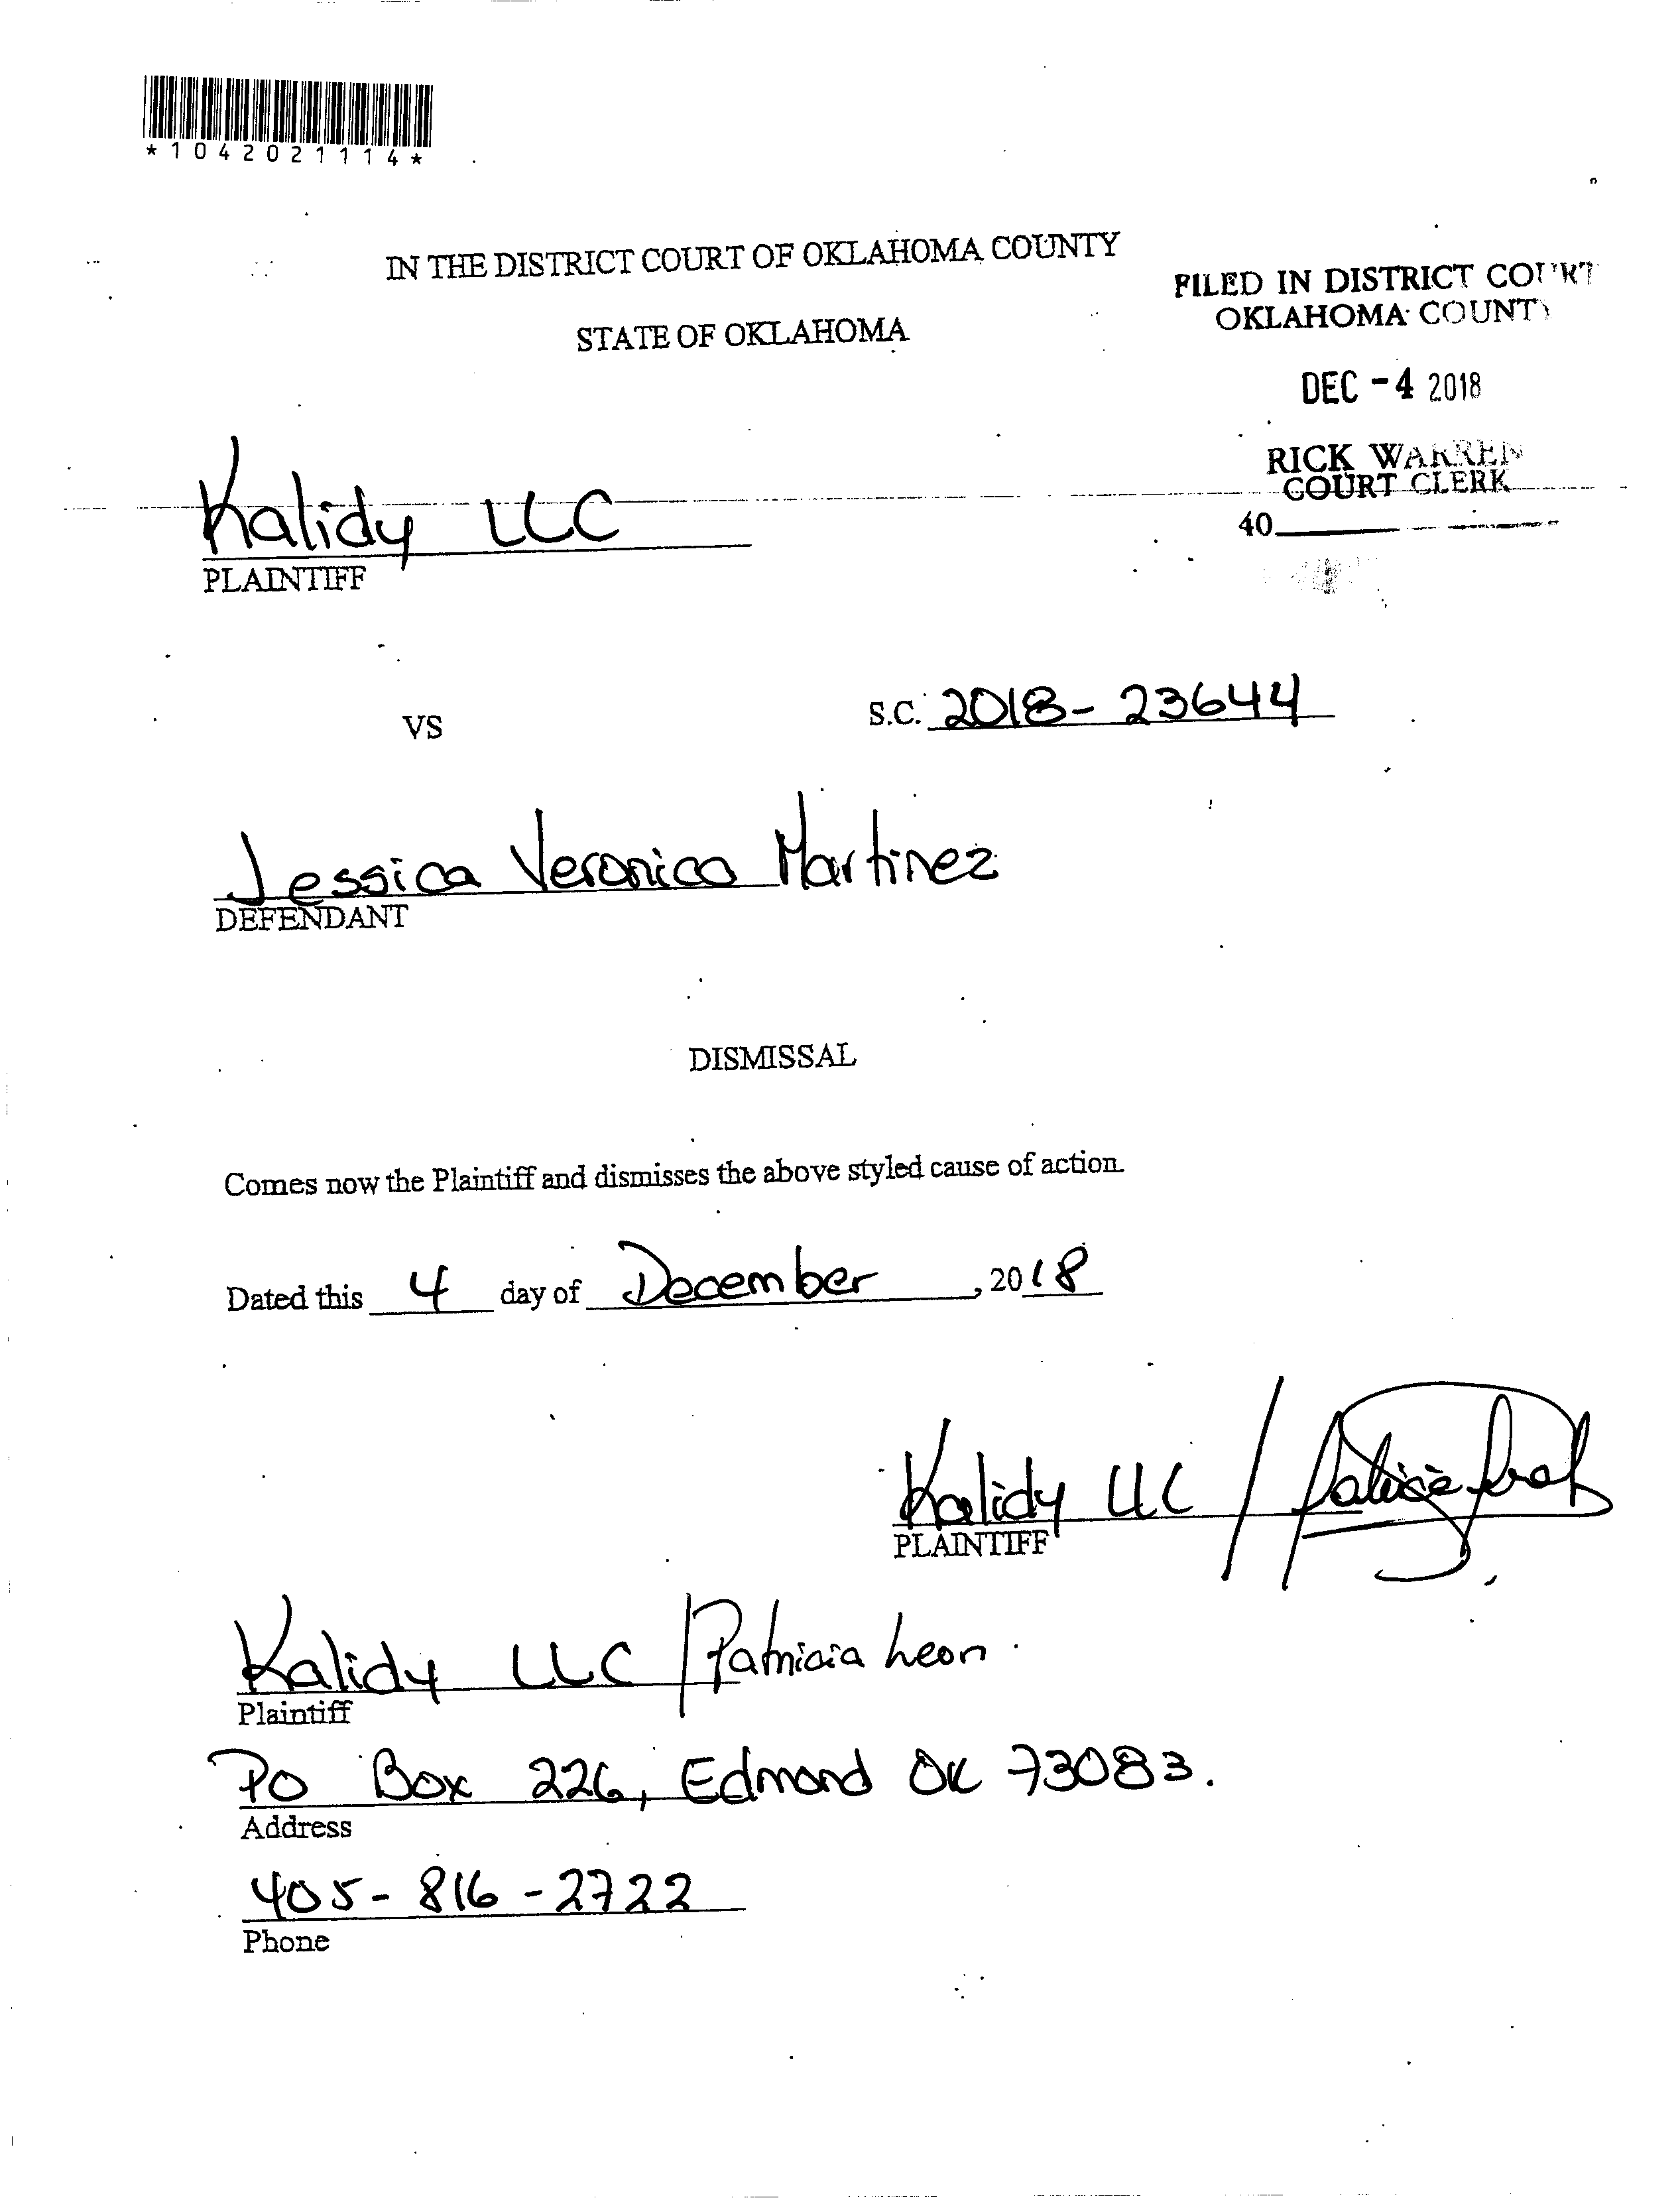 *1042021114*
IN THE DISTRICT COURT OF OKLAHOMA COUNTY
STATE OF OKLAHOMA
FILED IN DISTRICT COURT
OKLAHOMA COUNTY
DEC -4 2018
RICK WARREN
COURT CLERK
40
Kalidy LLC
PLAINTIFF
VS
S.C. 2018-23644
Jessica Veronica Martinez
DEFENDANT
DISMISSAL
Comes now the Plaintiff and dismisses the above styled cause of action.
Dated this 4 day of December, 2018
Kalidy LLC /
PLAINTIFF
Kalidy LLC / Patricia Leon.
Plaintiff
PO Box 226, Edmond OK 73083.
Address
405-816-2722
Phone